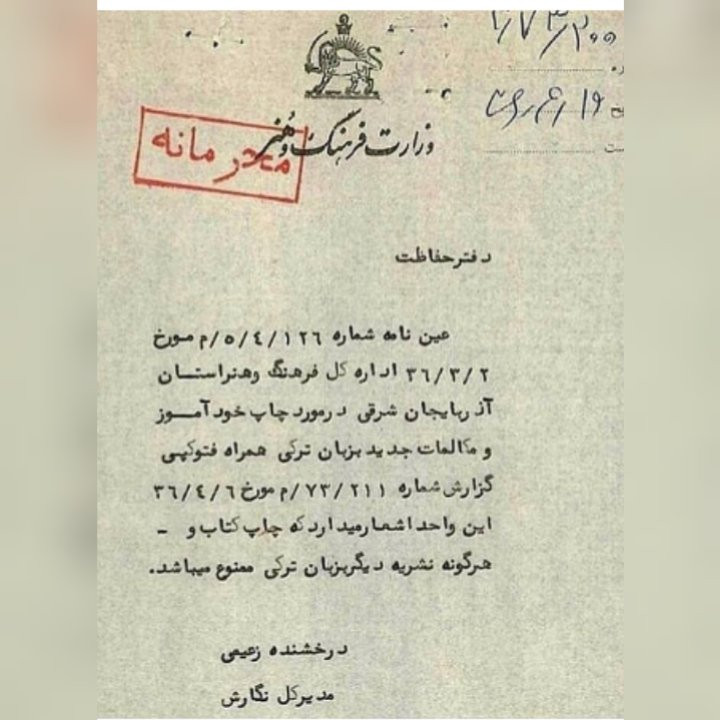 وزارت فرهنگ و هنر
محرمانه
دفتر حفاظت
عین نامه شماره ۱۲۶/۴/۵/م مورخ
۳۶/۳/۲ اداره کل فرهنگ وهنراستان
آذربایجان شرقی درمورد چاپ خودآموز
و مکالمات جدید بزبان ترکی همراه فتوکپی
گزارش شماره ۷۳/۲۱۱/م مورخ ۳۶/۴/۶
این واحد اشعارمیدارد که چاپ کتاب و -
هرگونه نشریه دیگربزبان ترکی ممنوع میباشد.
درخشنده زعیمی
مدیرکل نگارش